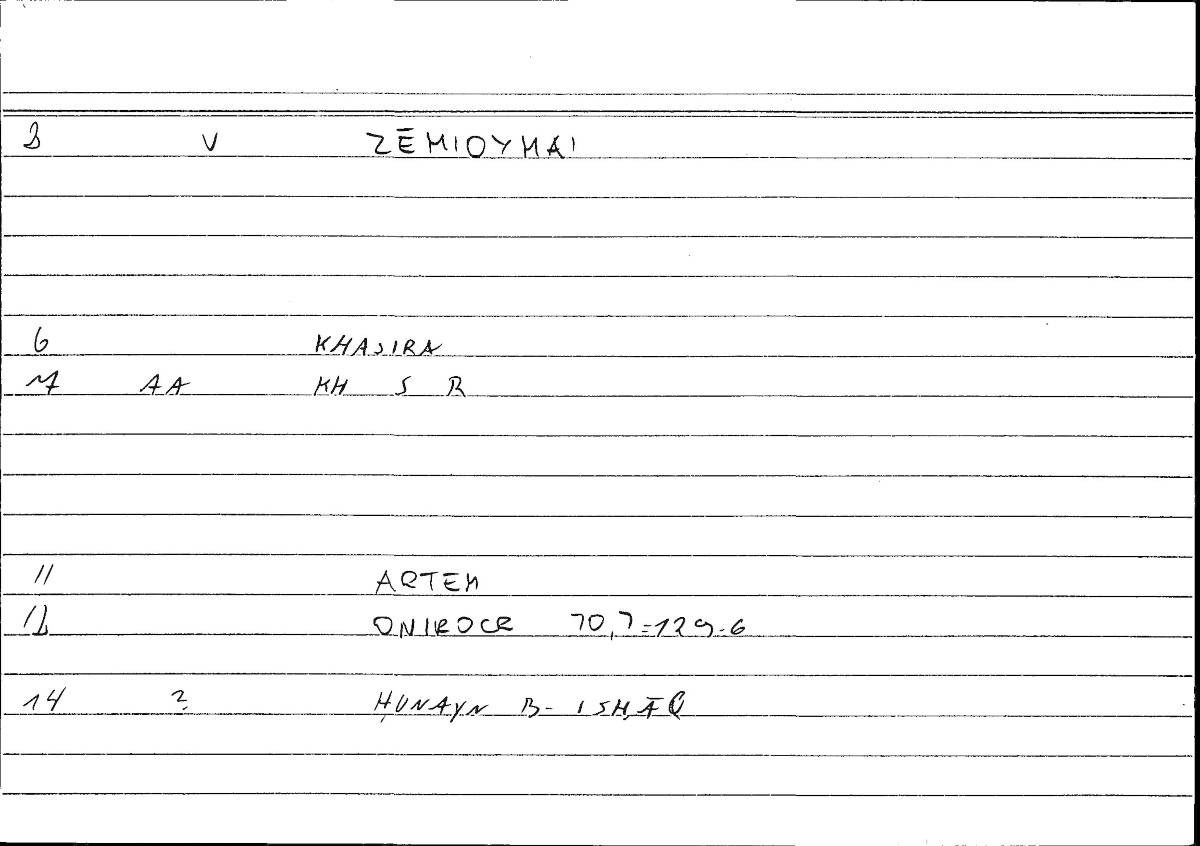 3 V ZĒMIOYMAI
6 KHASIRA
7 AA KH S R
11 ARTEM
12 ONIROCR 70,7=129.6
14 ? ḤUNAYN B- ISḤĀQ